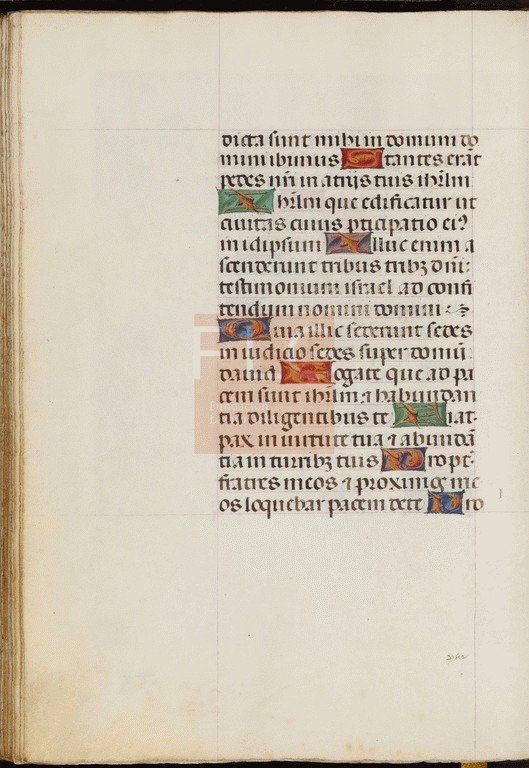 dicta sunt mihi in domum do
mini ibimus Stantes erāt
pedes nr̄i in atrijs tuis ihr̄lm
Ihr̄lm que edificatur ut
ciuitas cuius pticipatio eiꝰ
in idipsum Illuc enim a
scenderunt tribus tribꝫ dn̄i:
testimonium israel ad confi
tendum nomini domini
Quia illic sederunt sedes
in iudicio sedes super domū
dauid Rogate que ad pa
cem sunt ihr̄lm ⁊ habundan
tia diligentibus te Fiat
pax in uirtute tua ⁊ abundā
tia in turribꝫ tuis Propt̄
fratres meos ⁊ proximos me
os loquebar pacem de te Pro